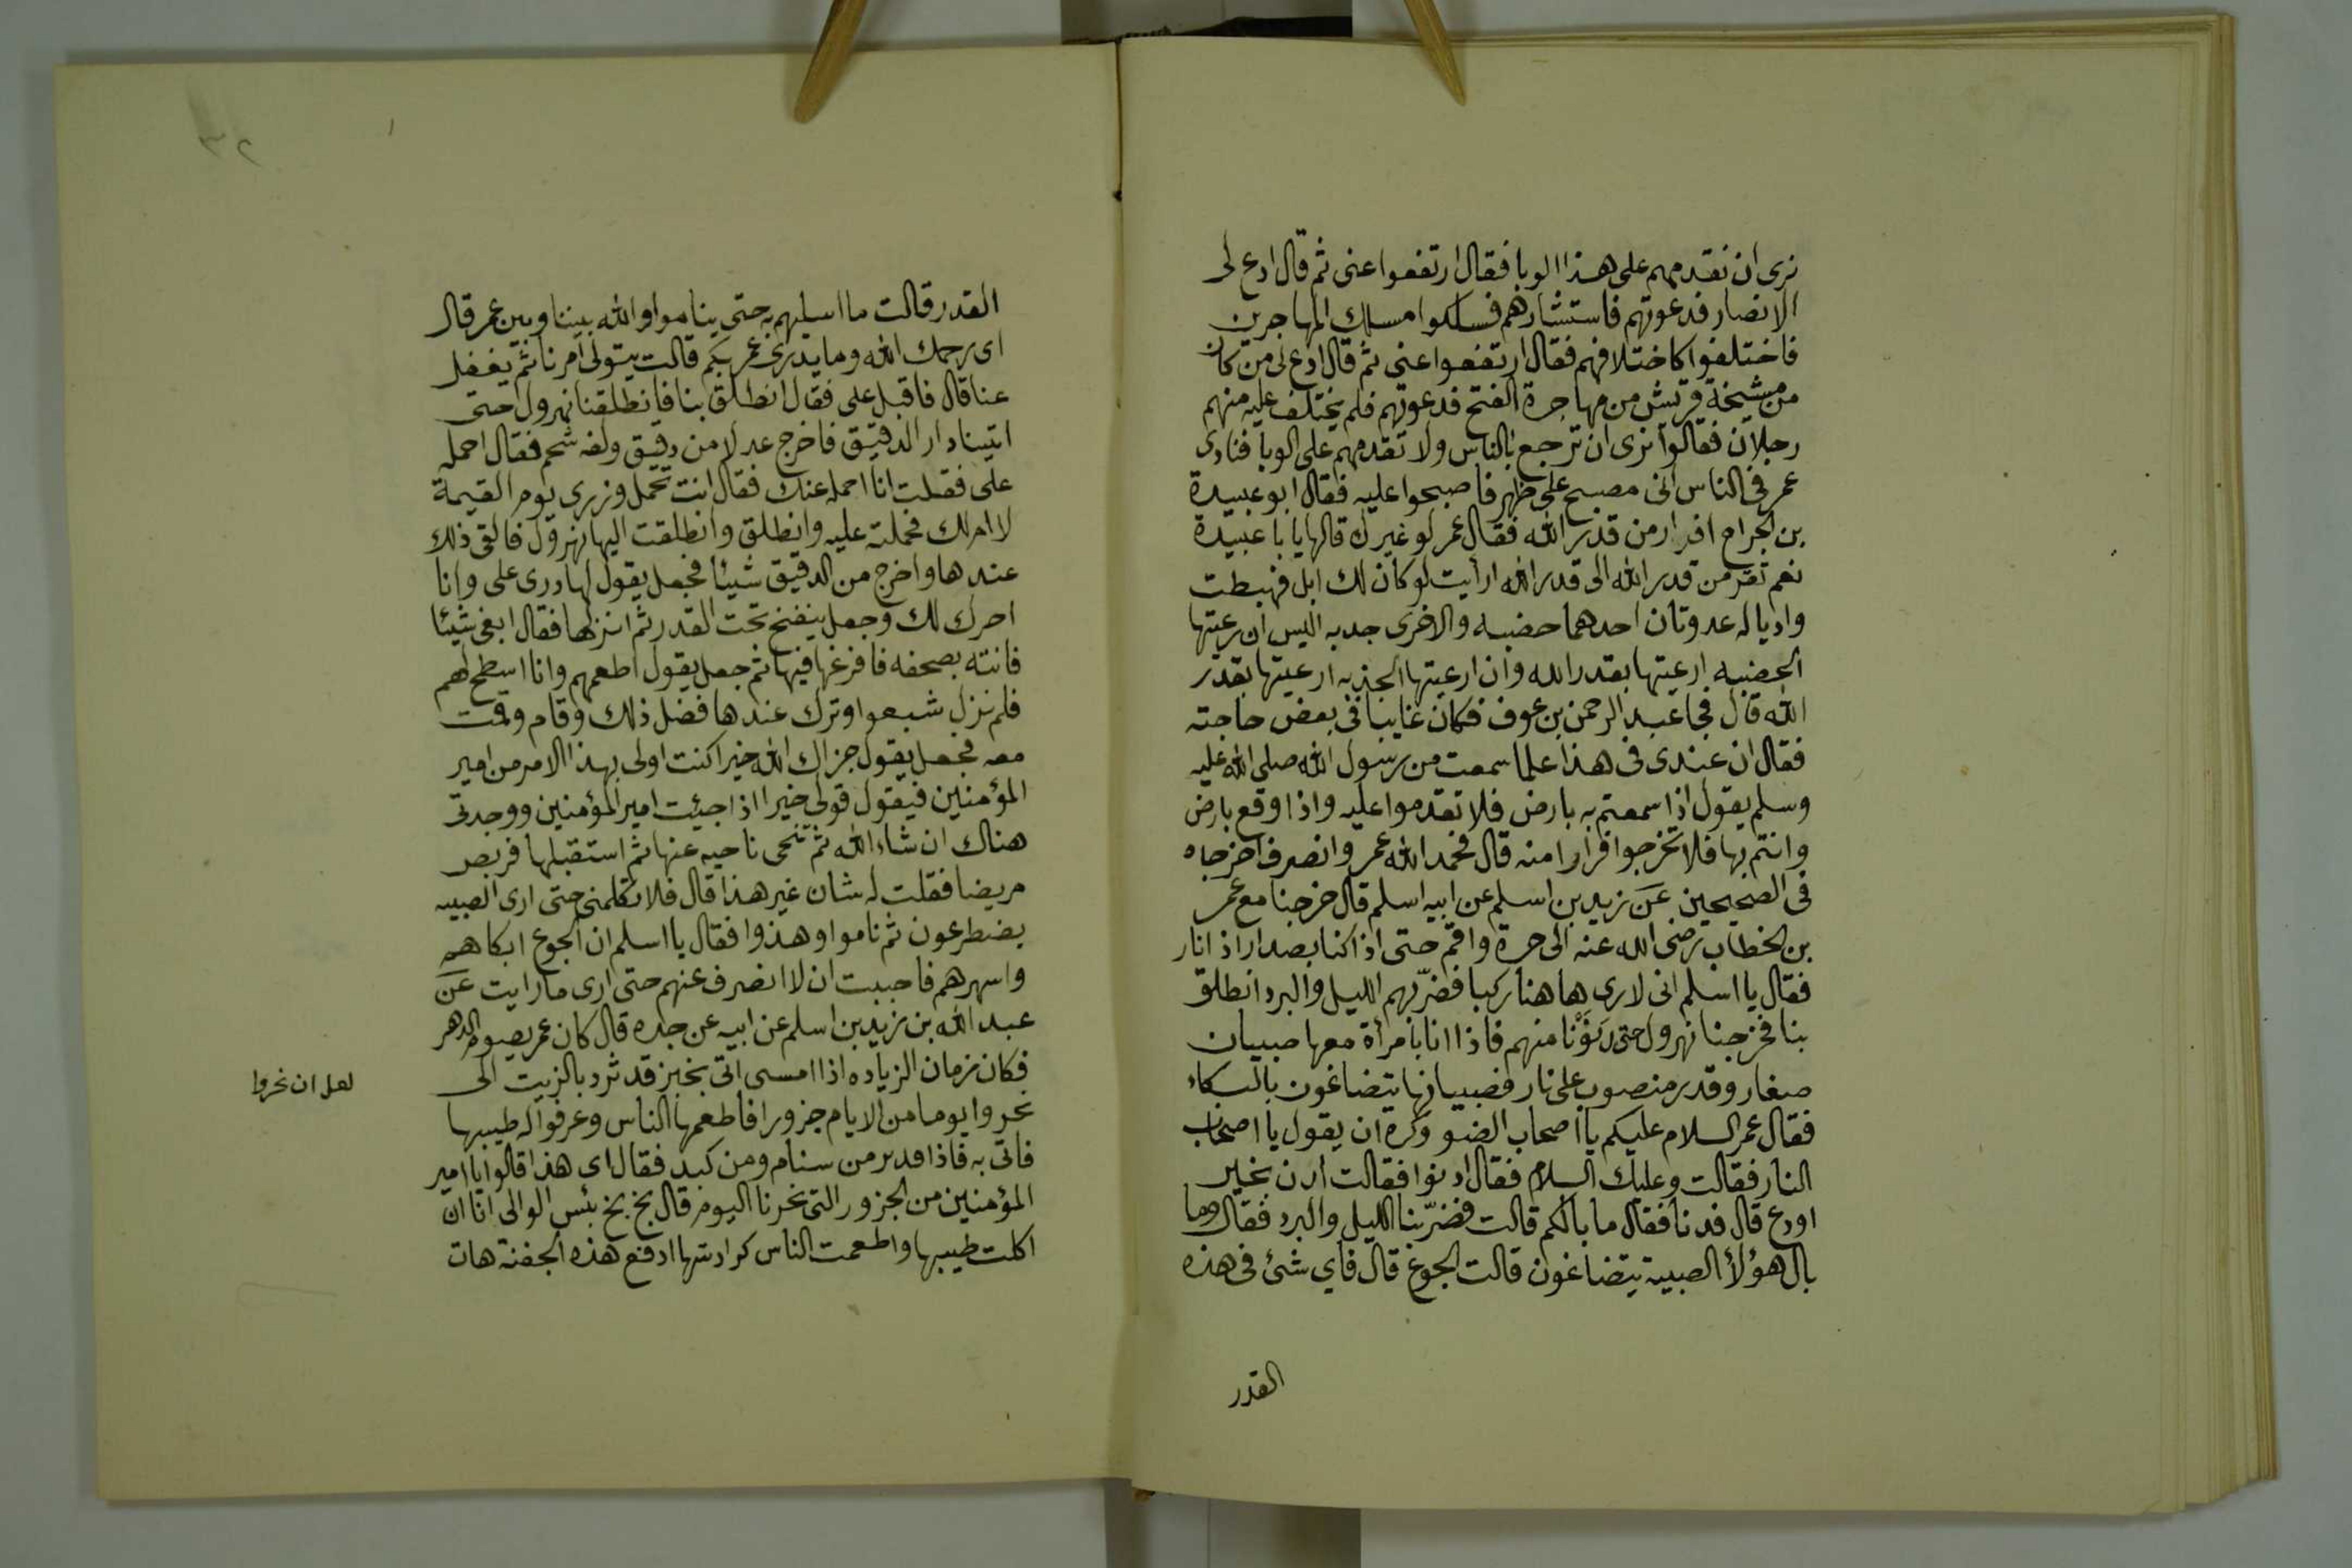 نرى ان نقدمهم على هذا الوبا فقال ارتفعوا عنى ثم قال ادع لى
الانصار فدعوتهم فاستشارهم فسلكوا مسلك المهاجرين
فاختلفوا كاختلافهم فقال ارتفعوا عنى ثم قال ادع لى من كان
من مشيخة قريش من مهاجرة الفتح فدعوتهم فلم يختلف عليه منهم
رجلان فقالوا نرى ان ترجع بالناس ولا تقدمهم على الوبا فنادى
عمر فى الناس انى مصبح على ظهر فاصبحوا عليه فقال ابو عبيدة
بن الجراح افرار من قدر الله فقال عمر لو غيرك قالها يا با عبيدة
نعم نفر من قدر الله الى قدر الله ارأيت لو كان لك ابل فهبطت
واديا له عدوتان احدهما خضبه والاخرى جدبه اليس ان رعيتها
الخضبه ارعيتها بقدر الله وان ارعيتها الجذبه ارعيتها بقدر
الله قال فجا عبد الرحمن بن عوف فكان غايبا فى بعض حاجته
فقال ان عندى فى هذا علما سمعت من رسول الله صلى الله عليه
وسلم يقول اذا سمعتم به بارض فلا تقدموا عليه واذا وقع بارض
وانتم بها فلا تخرجوا فرارا منه قال فحمد الله عمر وانصرف اخرجاه
فى الصحيحين عن زيد بن اسلم عن ابيه اسلم قال خرجنا مع عمر
بن الخطاب رضى الله عنه الى حرة واقم حتى اذا كنا بصدار اذا نار
فقال يا اسلم انى لارى هاهنا ركبا فضرّبهم الليل والبرد انطلق
بنا فخرجنا نهرول حتى دَنَوْنا منهم فاذا انا بامرأة معها صبيان
صغار وقدر منصوب على نار فصبيانها يتضاغون بالبكاء
فقال عمر السلام عليكم يا اصحاب الضو وكره ان يقول يا اصحاب
النار فقالت وعليك السلام فقال ادنوا فقالت ادن بخير
اودع قال فدنا فقال ما بالكم قالت فضرّبنا الليل والبرد فقال وما
بال هؤلأ الصبية يتضاغون قالت الجوع قال فاي شئ فى هذه
القدر
٣٢
القدر قالت ما اسليهم به حتى يناموا والله بيننا وبين عمر قال
اى رحمك الله وما يدرى عمر بكم قالت يتولى امرنا ثم يغفل
عنا قال فاقبل على فقال انطلق بنا فانطلقنا نهرول حتى
اتينا دار الدقيق فاخرج عدلا من دقيق ولفه شحم فقال احمله
على فقلت انا احمله عنك فقال انت تحمل وزرى يوم القيمة
لا ام لك فحملته عليه وانطلق وانطلقت اليها نهرول فالقى ذلك
عندها واخرج من الدقيق شيئا فجعل يقول لها درى على وانا
احرك لك وجعل ينفخ تحت القدر ثم انزلها فقال ابغى شيئا
فانته بصحفه فافرغها فيها ثم جعل يقول اطعمهم وانا اسطح لهم
فلم نزل شبعوا وترك عندها فضل ذلك وقام وقمت
معه فجعل يقول جزاك الله خيرا كنت اولى بهذا الامر من امير
المؤمنين فيقول قولى خيرا اذا جيئت امير المؤمنين ووجدتى
هناك ان شاء الله ثم تنحى ناحيه عنها ثم استقبلها فربص
مريضا فقلت له شان غير هذا قال فلا تكلمنى حتى ارى الصبيه
يضطرعون ثم ناموا وهذوا فقال يا اسلم ان الجوع ابكاهم
واسهرهم فاحببت ان لا انصرف عنهم حتى ارى ما رايت عن
عبد الله بن زيد بن اسلم عن ابيه عن جده قال كان عمر يصوم الدهر
فكان زمان الزياده اذا امسى اتى بخبز قد ثرد بالزيت الى
نحروا يوما من الايام جزورا فاطعمها الناس وعرفوا له طيبها
فاتى به فاذا فدر من سنام ومن كبد فقال اى هذا قالوا يا امير
المؤمنين من الجزور التى نحرنا اليوم قال بخ بخ بئس الوالى انا ان
اكلت طيبها واطعمت الناس كرادسها ادفع هذه الجفنة هات
لعل ان نحروا